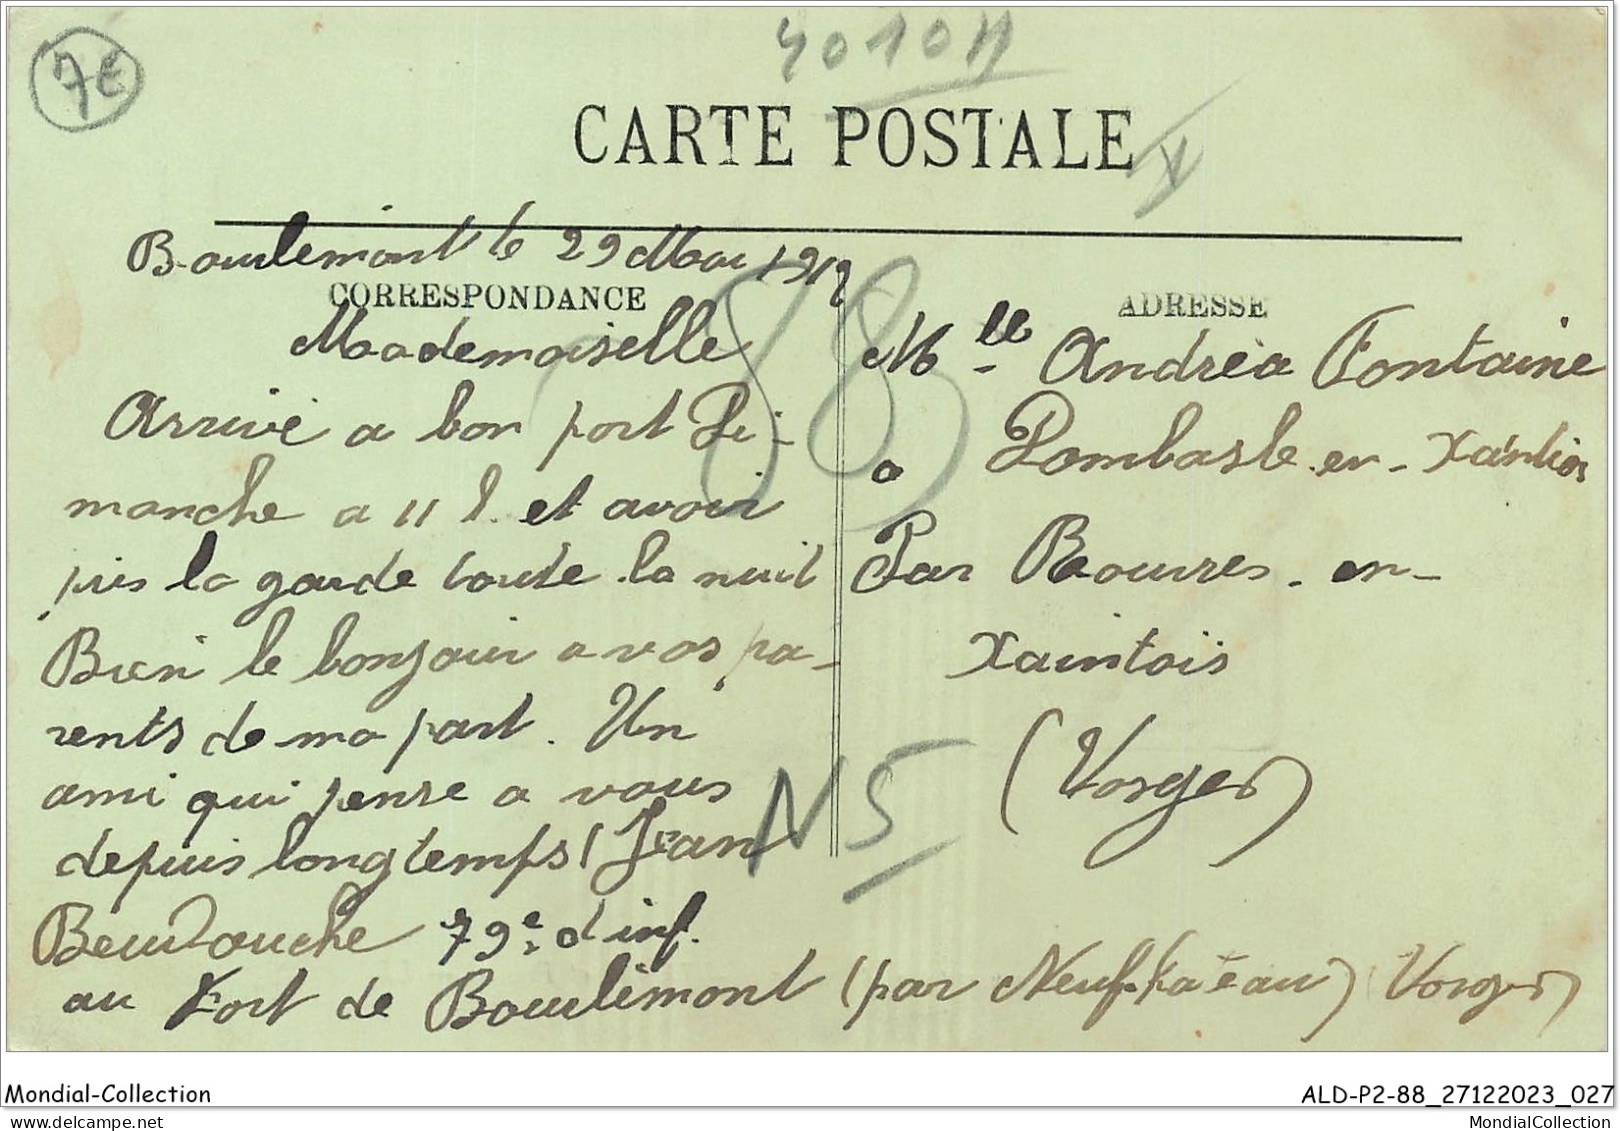 7€
4010H
CARTE POSTALE
Bourlemont le 29 Mai 1912
CORRESPONDANCE
Mademoiselle
Arrivé a bon port Di-
manche a 11 h. et avoir
pris la garde toute la nuit
Bien le bonjour a vos pa-
rents de ma part. Un
ami qui pense a vous
depuis longtemps (Jean
79e d'inf.
au Fort de Bourlémont (par Neufchateau) Vosges)
88
N5
ADRESSE
Mlle Andréa Fontaine
a Pombasle-en-Xaintois
Par Rouvres-en-
Xaintois
(Vosges)
Mondial-Collection
ALD-P2-88_27122023_027
the-best-of-all-of-us
MondialCollection